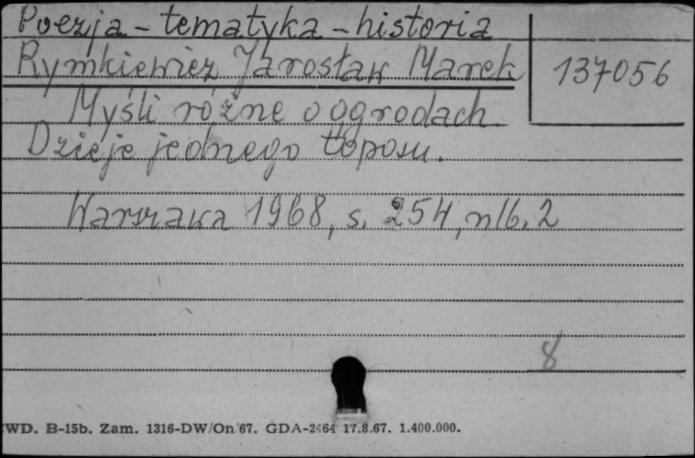 Poezja - tematyka - historia
Rymkiewicz Jarosław Marek 137056
Myśli różne o ogrodach
Dzieje jednego toposu.
Warszawa 1968, s. 254, nlb. 2
8
WD. B-15b. Zam. 1316-DW/On 67. GDA-2464 17.8.67. 1.400.000.